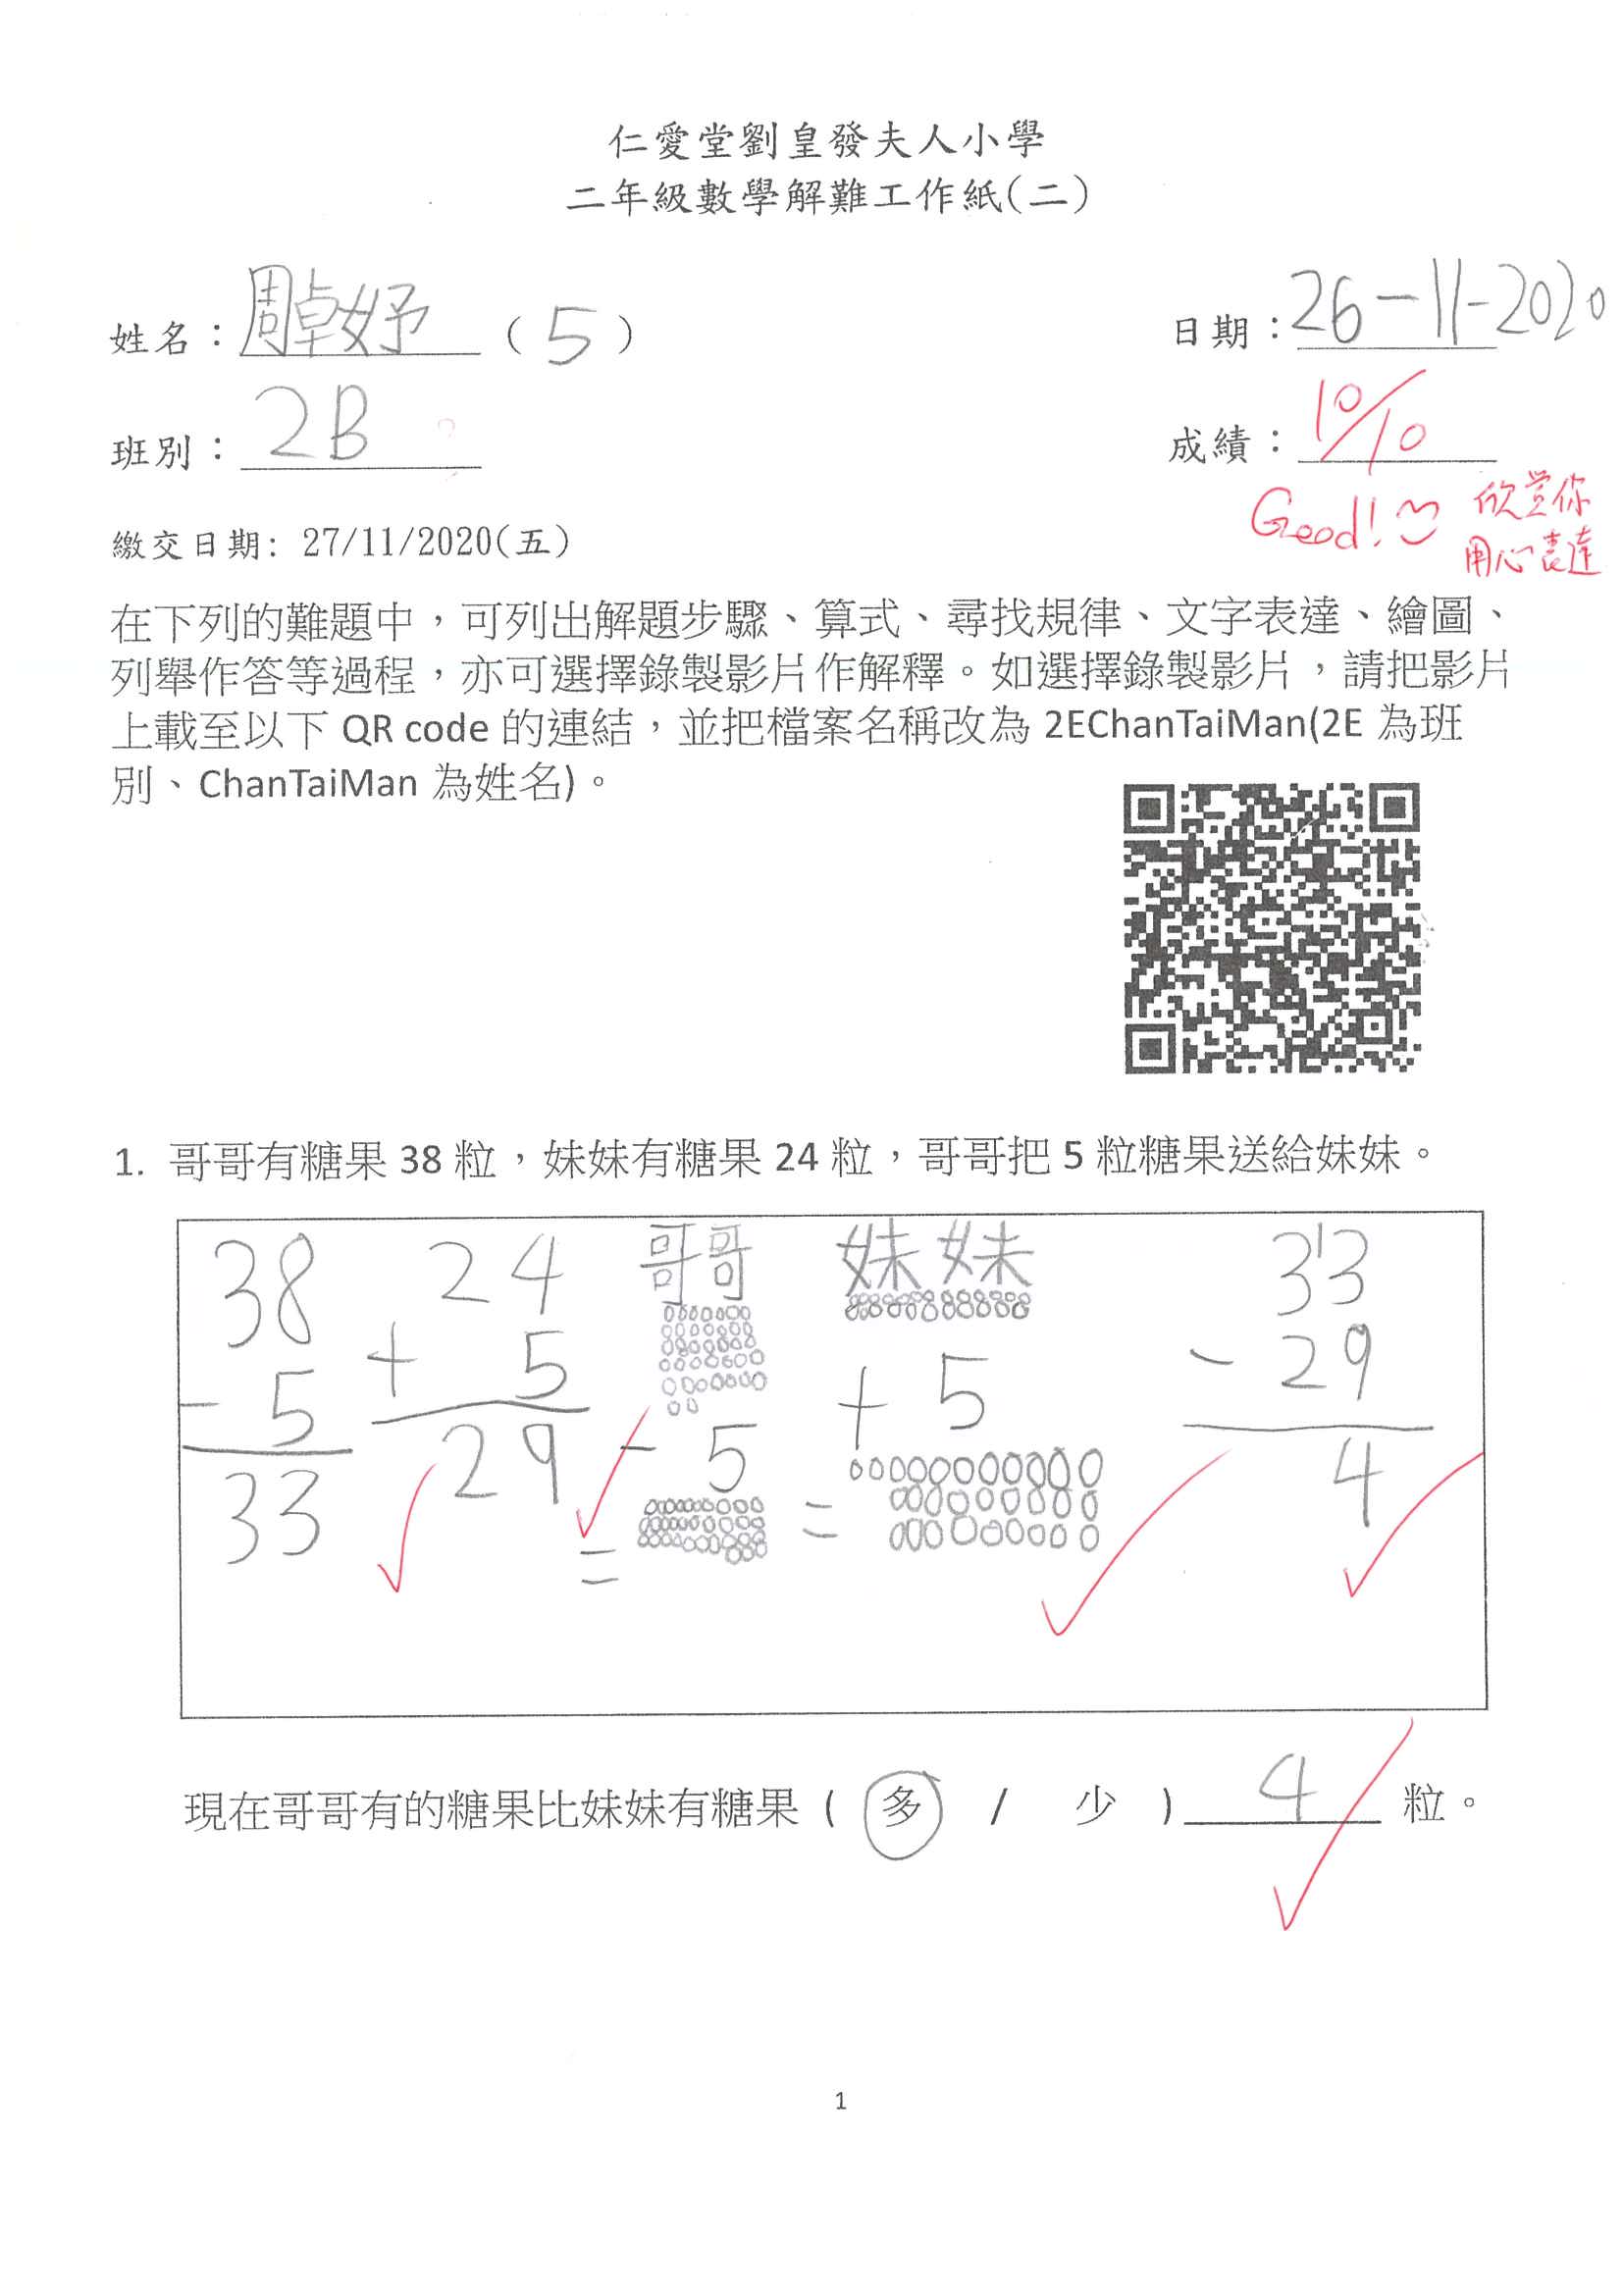 仁愛堂劉皇發夫人小學
二年級數學解難工作紙(二)
姓名：周卓妤 (5) 日期：26-11-2020
班別：2B 成績：10/10
Good! 欣賞你
用心表達
繳交日期: 27/11/2020(五)
在下列的難題中，可列出解題步驟、算式、尋找規律、文字表達、繪圖、
列舉作答等過程，亦可選擇錄製影片作解釋。如選擇錄製影片，請把影片
上載至以下 QR code 的連結，並把檔案名稱改為 2EChanTaiMan(2E 為班
別、ChanTaiMan 為姓名)。
1. 哥哥有糖果 38 粒，妹妹有糖果 24 粒，哥哥把 5 粒糖果送給妹妹。
38 24 哥哥 妹妹 33
- 5 + 5 - 5 + 5 - 29
33 29 = = 4
現在哥哥有的糖果比妹妹有糖果 ( 多 / 少 ) 4 粒。
1